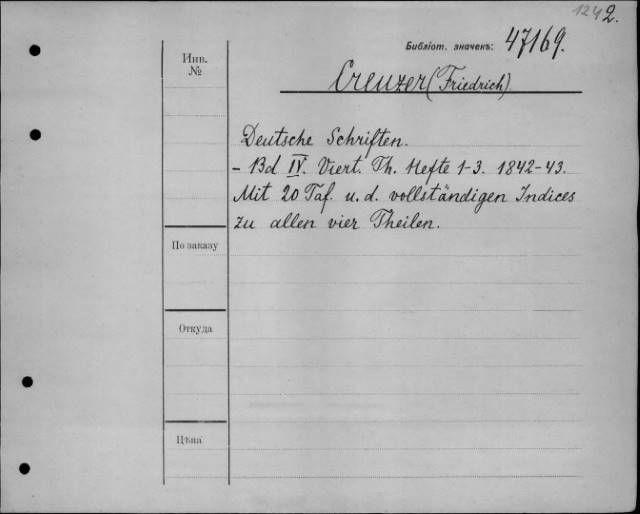 1242.
Библіот. значекъ: 47169.
Инв.
№
Creuzer (Friedrich).
Deutsche Schriften.
- Bd IV. Viert. Th. Hefte 1-3. 1842-43.
Mit 20 Taf. u. d. vollständigen Indices
zu allen vier Theilen.
По заказу
Откуда
Цѣна